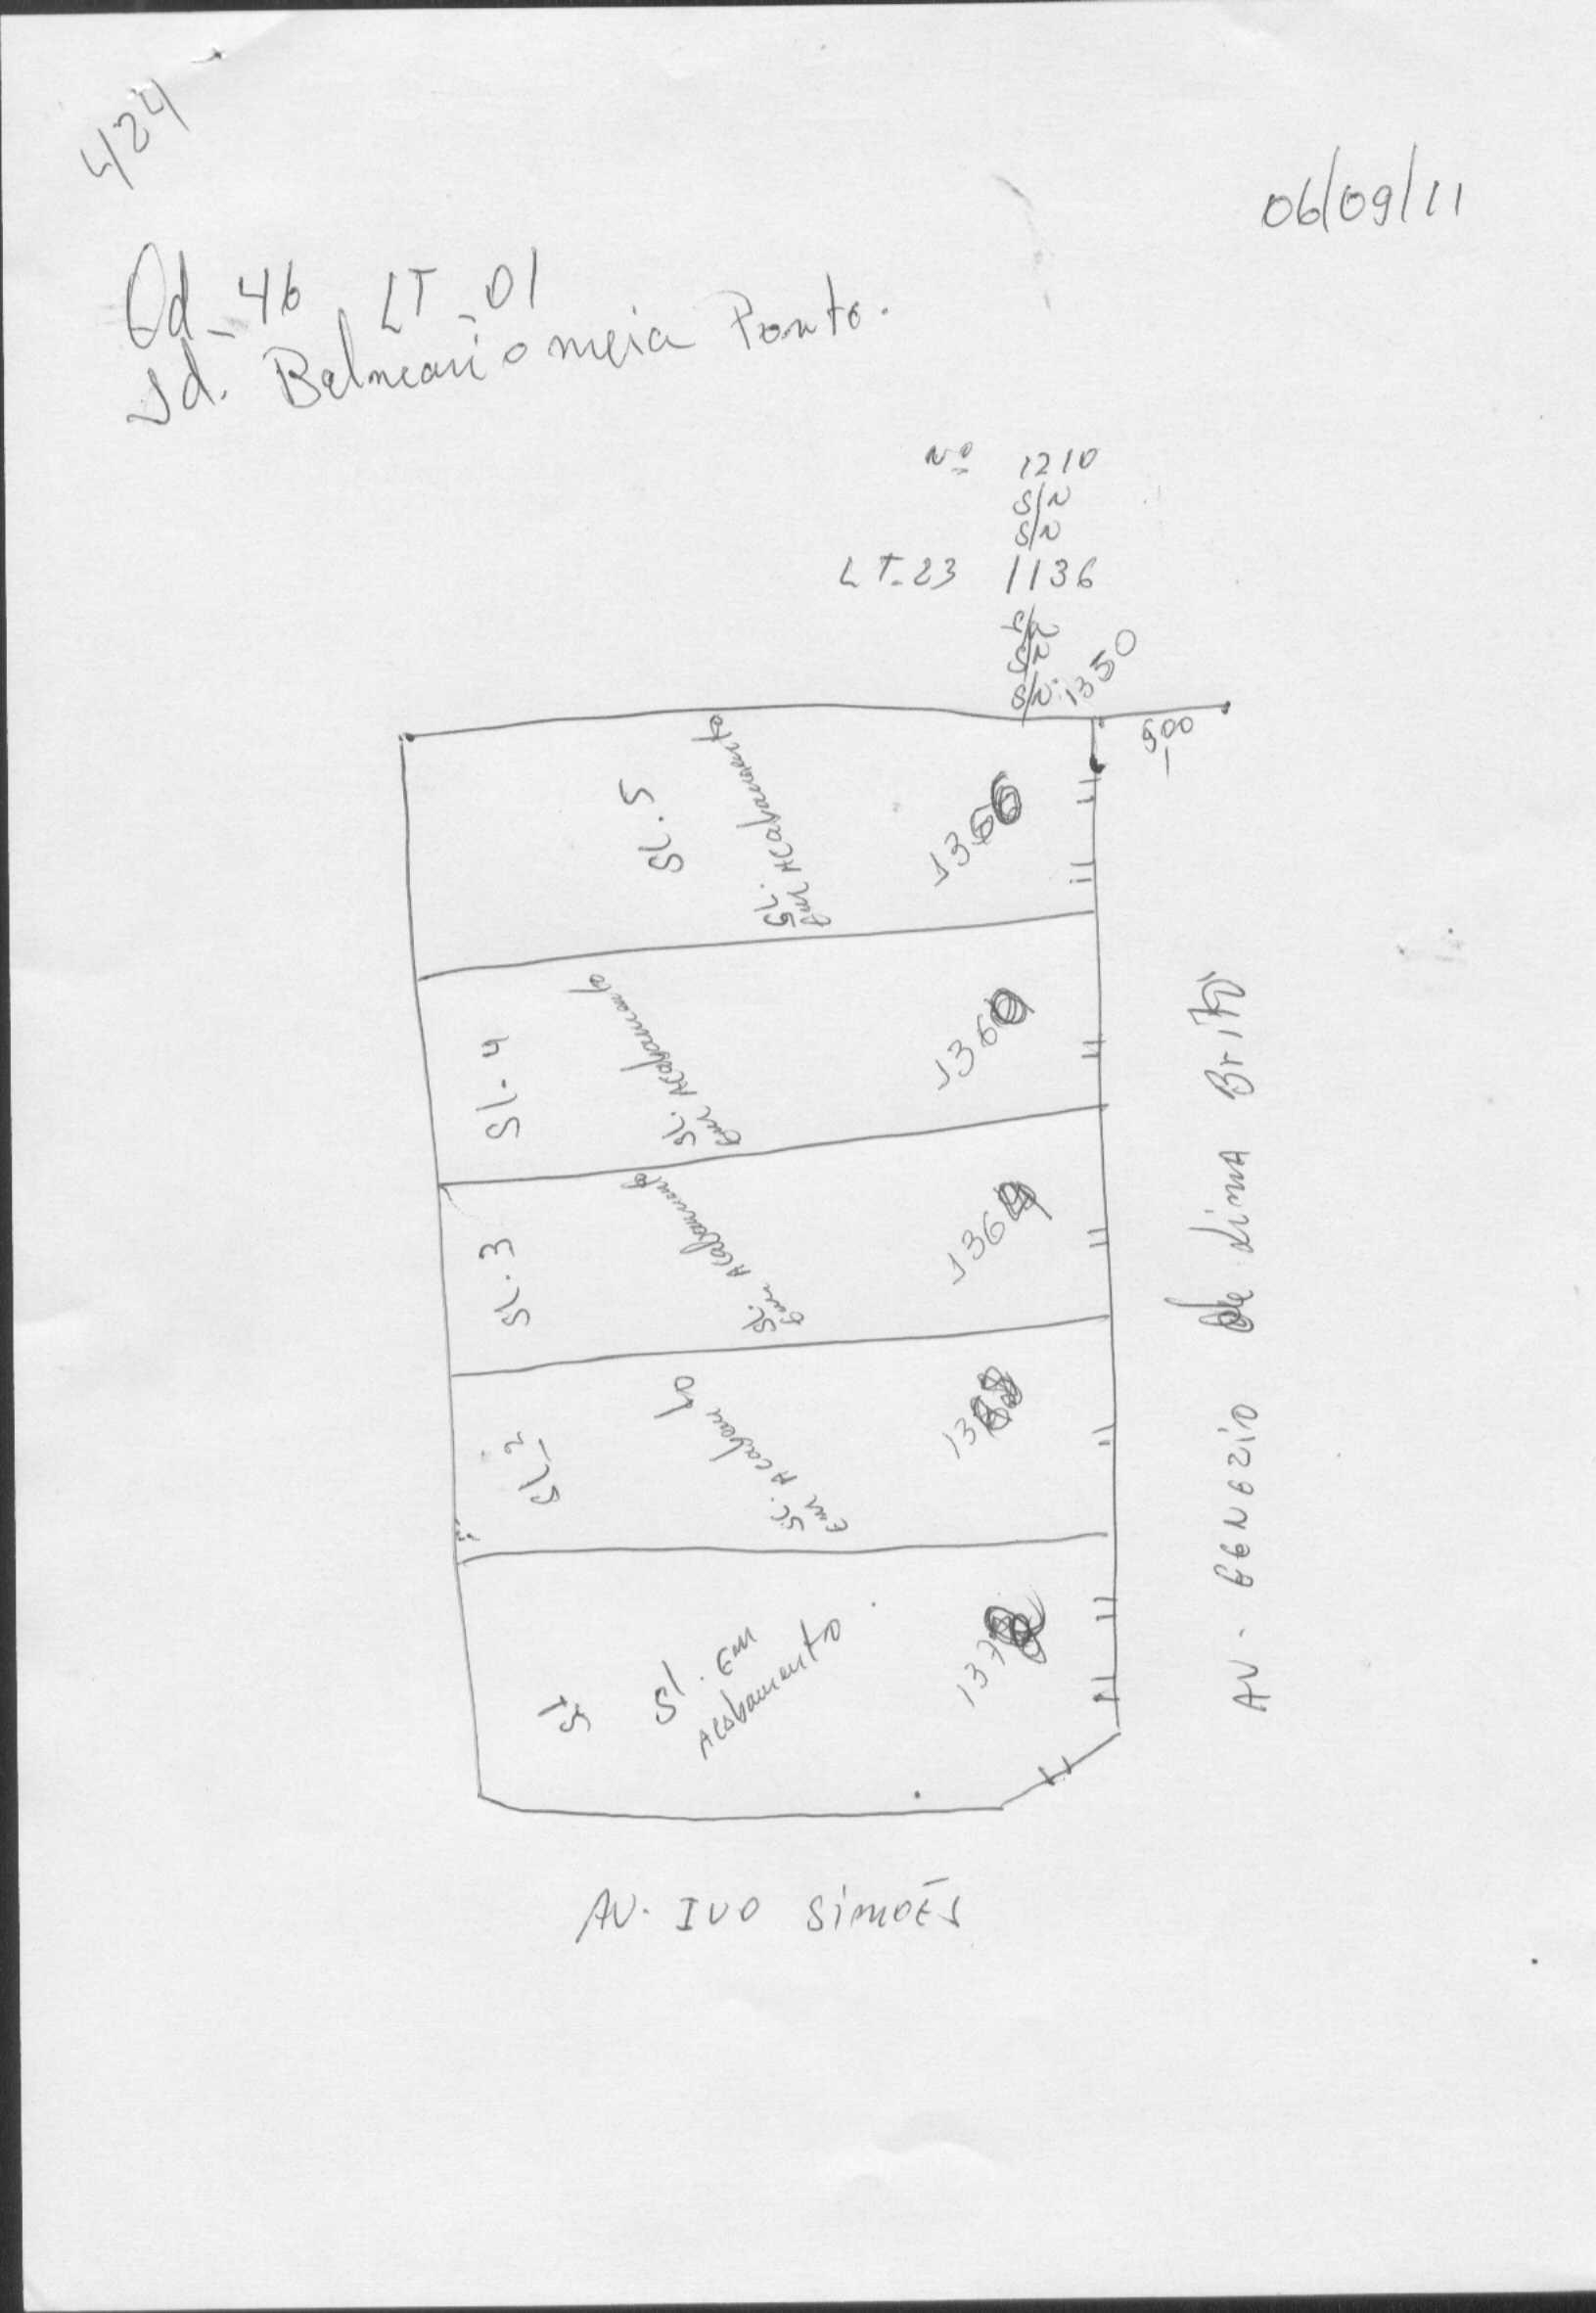 424
06/09/11
Qd_46 LT_01
Jd. Balneario meia Ponto.
Nº 1210
S/N
S/N
LT-23 1136
S/N
S/N
S/N: 1350
500
SL. 5
SL. Em Acabamento
SL. 4
SL. Em Acabamento
SL. 3
SL. Em Acabamento
SL_2
SL. Em
SL. Em
Acabamento
AV. GENEZIO de Lima Brito
AV. IVO SIMÕES